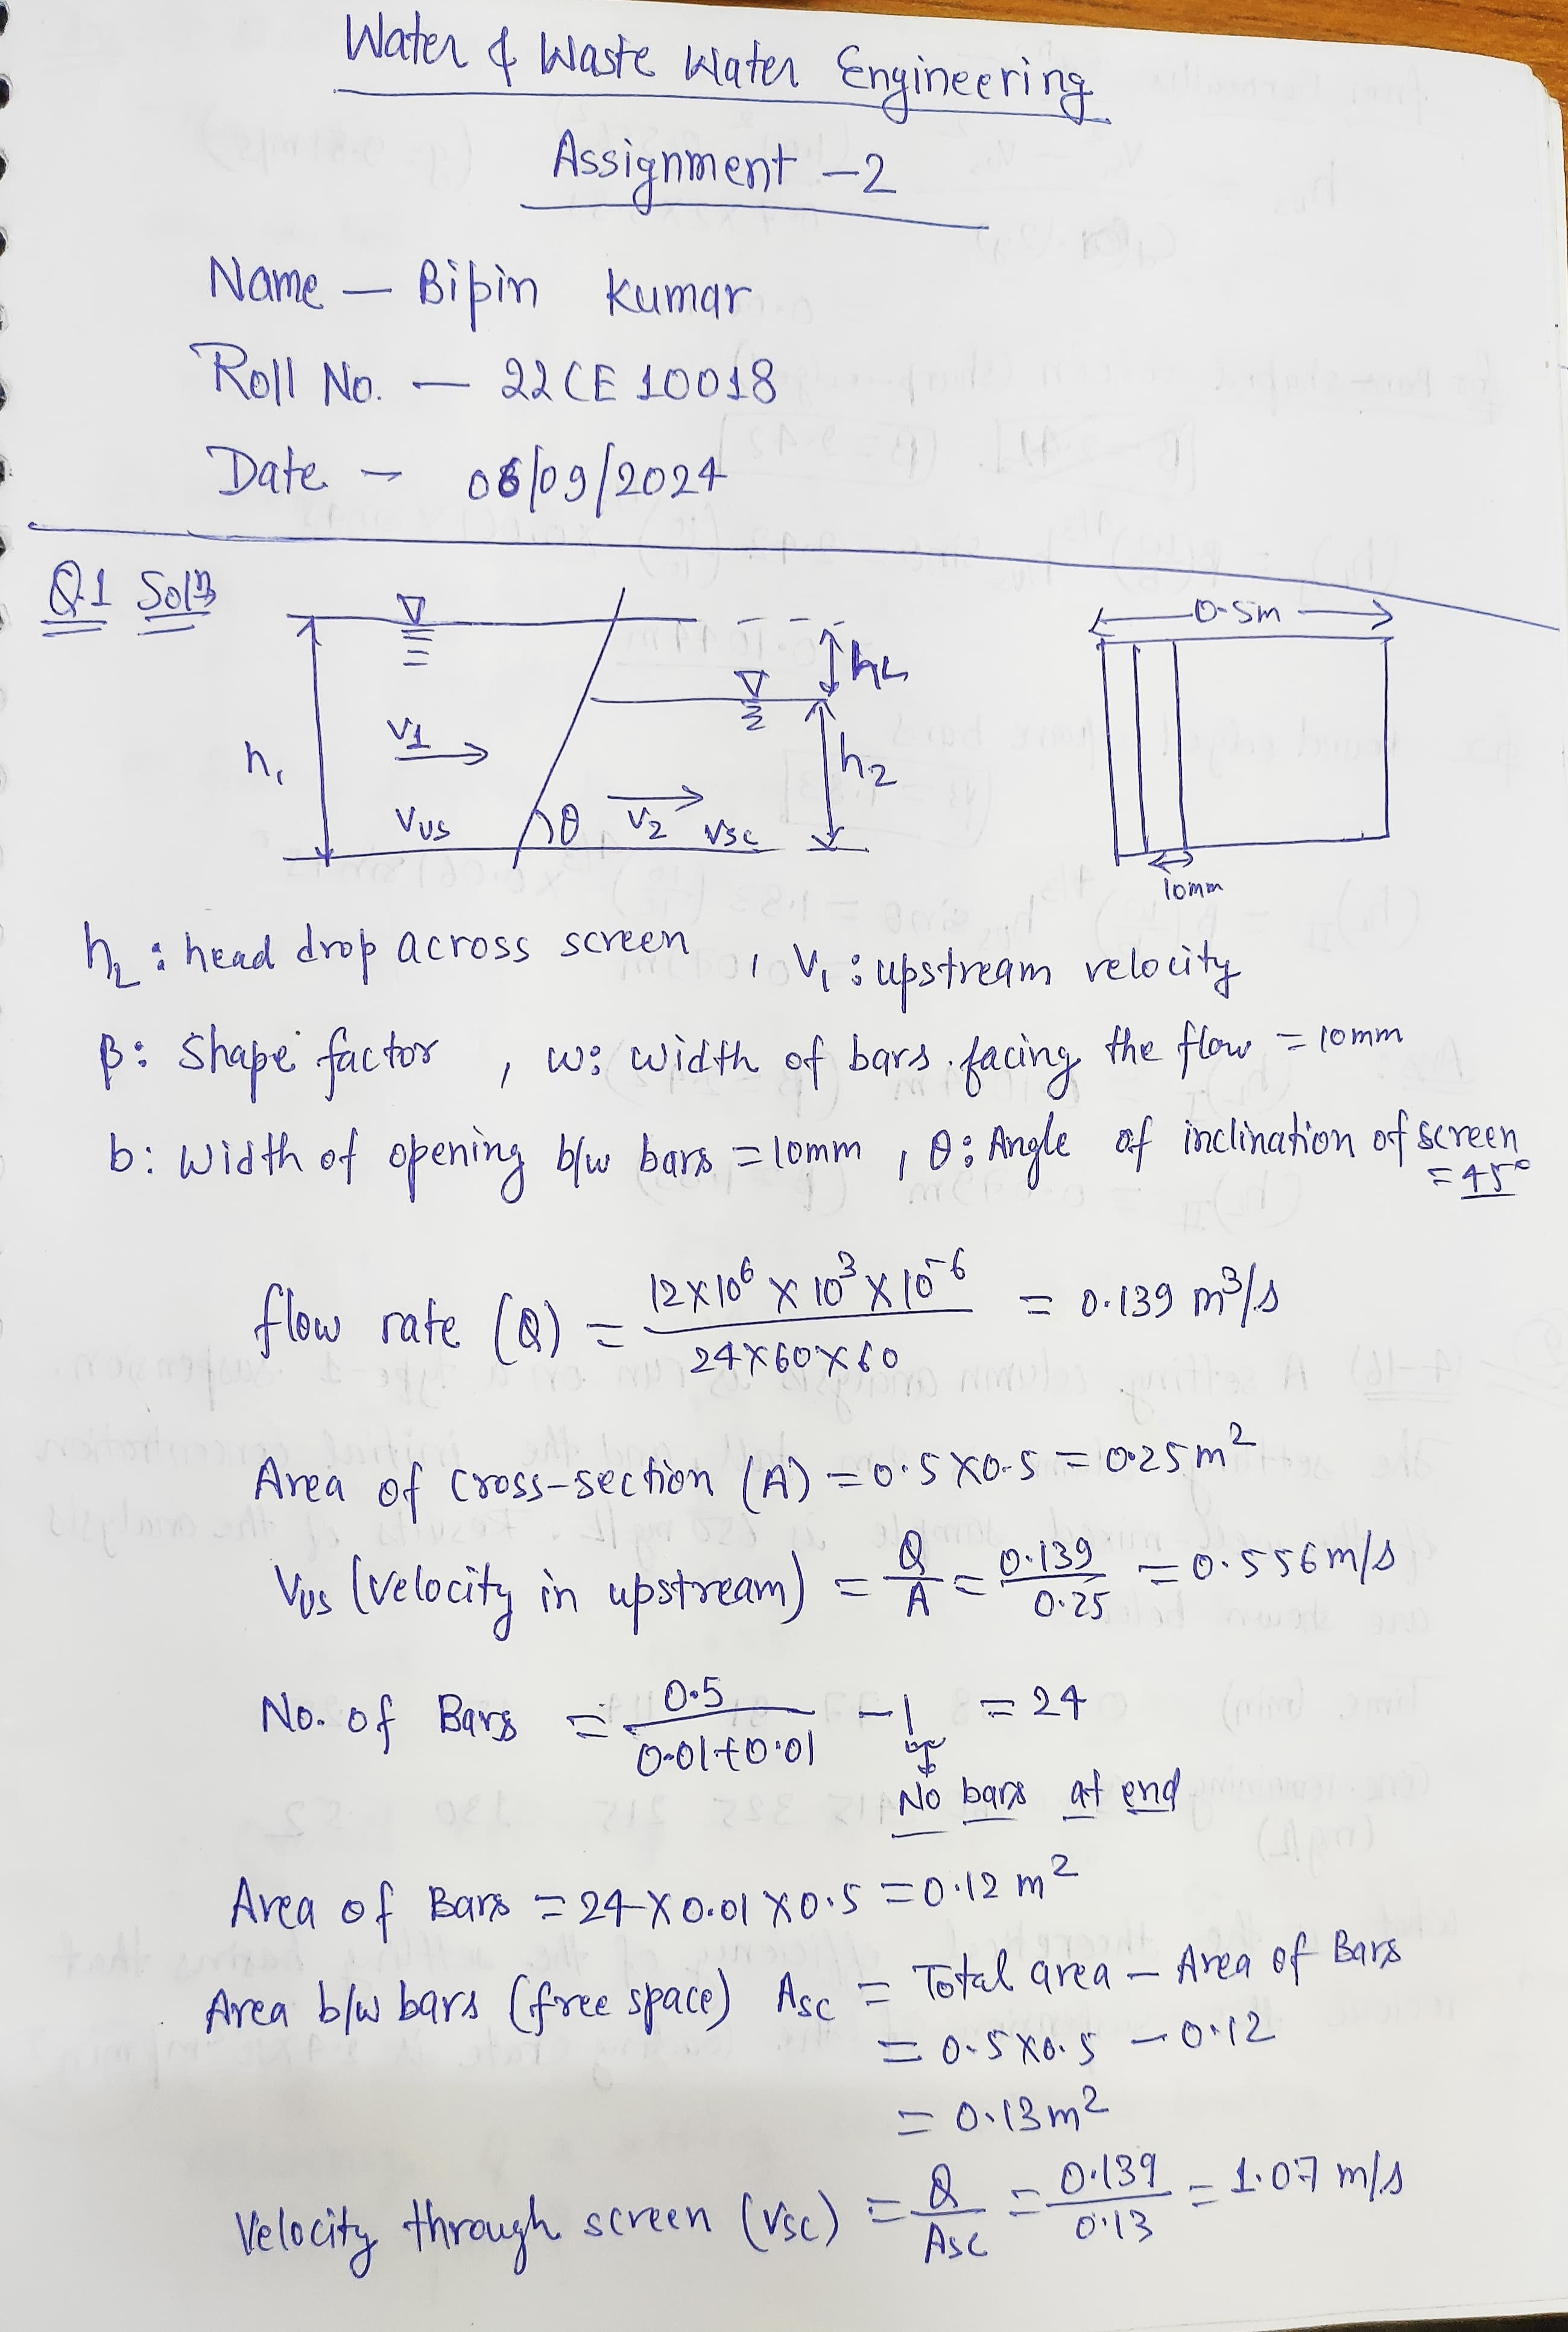 Water & Waste Water Engineering
Assignment -2
Name — Bipin Kumar
Roll No. — 22CE10018
Date - 06/09/2024
Q.1 Soln
0.5m
hL
h1
V1
h2
Vus
θ
V2
Vsc
10mm
hL : head drop across screen , V1 : upstream velocity
β: Shape factor , w: width of bars facing the flow = 10mm
b: Width of opening b/w bars = 10mm , θ: Angle of inclination of screen
= 45°
flow rate (Q) = 12×10⁶ × 10³ × 10⁻⁶ / 24×60×60 = 0.139 m³/s
Area of cross-section (A) = 0.5×0.5 = 0.25m²
Vus (velocity in upstream) = Q/A = 0.139/0.25 = 0.556 m/s
No. of Bars = 0.5/0.01+0.01 - 1 = 24
No bars at end
Area of Bars = 24×0.01×0.5 = 0.12 m²
Area b/w bars (free space) Asc = Total area - Area of Bars
= 0.5×0.5 - 0.12
= 0.13m²
Velocity through screen (Vsc) = Q/Asc = 0.139/0.13 = 1.07 m/s